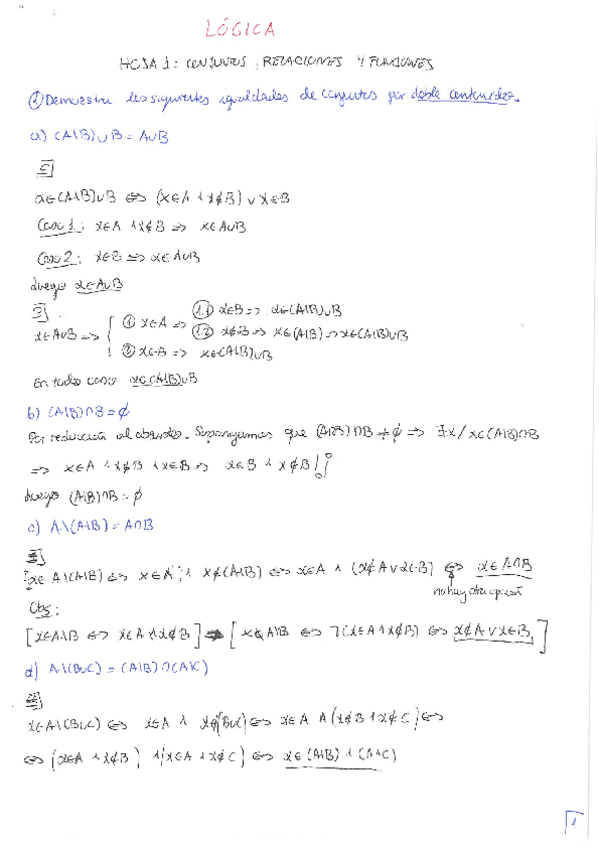 LÓGICA
HOJA 1: CONJUNTOS, RELACIONES Y FUNCIONES
① Demuestra las siguientes igualdades de conjuntos por doble contenido.
a) (A\B)∪B = A∪B
⊆]
x∈(A\B)∪B ⇔ (x∈A ∧ x∉B) ∨ x∈B
Caso 1: x∈A ∧ x∉B ⇒ x∈A∪B
Caso 2: x∈B ⇒ x∈A∪B
Luego x∈A∪B
⊇]
x∈A∪B ⇒ { ① x∈A ⇒ (1.1) x∈B ⇒ x∈(A\B)∪B
(1.2) x∉B ⇒ x∈(A\B) ⇒ x∈(A\B)∪B
② x∈B ⇒ x∈(A\B)∪B
En todo caso x∈(A\B)∪B
b) (A\B)∩B = ∅
Por reducción al absurdo. Supongamos que (A\B)∩B ≠ ∅ ⇒ ∃x / x∈(A\B)∩B
⇒ x∈A ∧ x∉B ∧ x∈B ⇒ x∈B ∧ x∉B !¡
Luego (A\B)∩B = ∅
c) A\(A\B) = A∩B
x∈A\(A\B) ⇔ x∈A ∧ x∉(A\B) ⇔ x∈A ∧ (x∉A ∨ x∈B) ⇔ x∈A∩B
no hay otra opción
Obs:
[x∈A\B ⇔ x∈A ∧ x∉B] ⇒ [x∉A\B ⇔ ¬(x∈A ∧ x∉B) ⇔ x∉A ∨ x∈B]
d) A\(B∪C) = (A\B)∩(A\C)
x∈A\(B∪C) ⇔ x∈A ∧ x∉(B∪C) ⇔ x∈A ∧ (x∉B ∧ x∉C) ⇔
⇔ (x∈A ∧ x∉B) ∧ (x∈A ∧ x∉C) ⇔ x∈(A\B) ∧ (A\C)
1